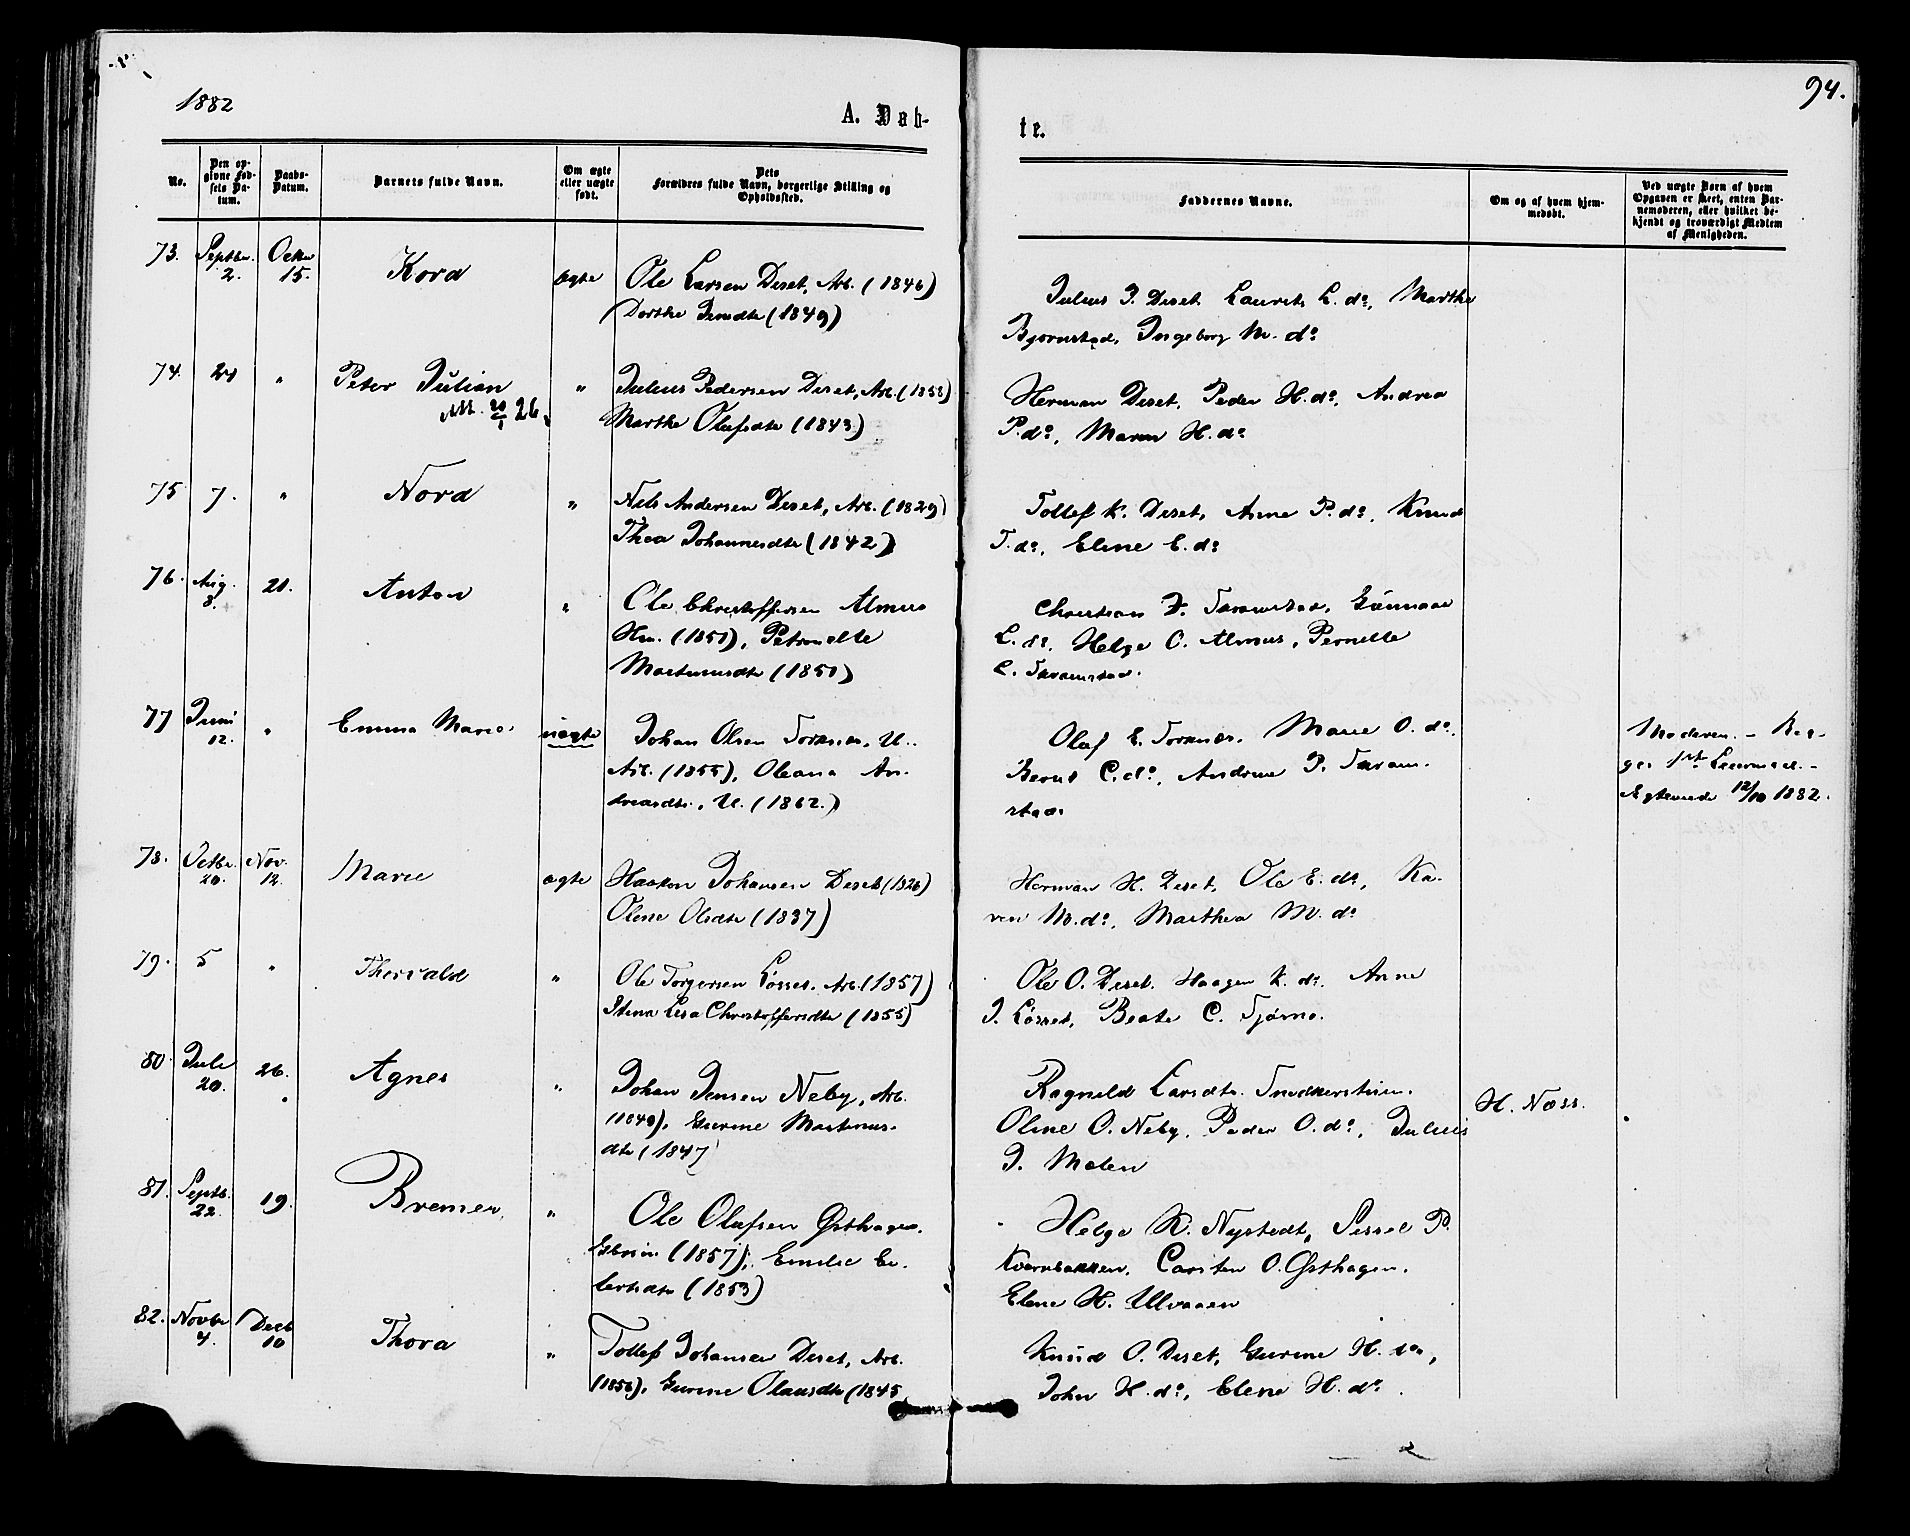 1882
A. Døb-
te.
94.
No.
Den op-
givne Fød-
sels Da-
tum.
Daabs-
Datum.
Barnets fulde Navn.
Om ægte
eller uægte
født.
Dets
Forældres fulde Navn, borgerlige Stilling og
Opholdssted.
Faddernes Navne.
Om og af hvem hjem-
medøbt.
Ved uægte Børn af hvem
Opgaven er skeet, enten Bar-
nemoderen, eller hvilket be-
kjendt og troværdigt Medlem
af Menigheden.
73. Septbr. 2. Octbr 15. Kord ægte Ole Larsen Deset, Arb. (1846)
Dorthe Jensdtr (1849)
Julius P. Deset, Laurits L. do, Marthe
Bjørnstad, Ingeborg M. do
74. 21 " Peter Julian " Julius Pedersen Deset, Arb. (1853)
Marthe Olafsdtr (1843)
Herman Deset, Peder H. do, Andrea
P. do, Maren H. do
75 7. " Nord " Nels Andersen Deset, Arb. (1829)
Thea Johannesdtr (1842)
Tollef K. Deset, Anne P. do, Knud
T. do, Elene E. do
76. Aug. 8. 21. Anton " Ole Christoffersen Almus
Hm. (1851), Petronelle
Martinusdtr (1851)
Christian F. Taramstad, Gunnar
L. do, Helge O. Almus, Pernelle
C. Taramstad.
77 Juni 12. " Emma Marie uægte Johan Olsen Torknæs, U.
Arb. (1855), Oleana An-
dreasdtr, U. (1862.)
Olaf E. Torknæs, Marie O. do,
Bernt C. do, Andrine P. Taram-
stad
Moderen. - Beg-
ges 1ste Leiermaal. -
Ægteviede 12/10 1882.
78. Octbr. 20. Nov. 12. Marie ægte Haakon Johansen Deset (1826)
Olene Olsdtr (1837)
Herman H. Deset, Ole E. do, Ka-
ren M. do, Marthea M. do
79. 5 " Thorvald " Ole Torgersen Løsset, Arb. (1857)
Stina Lisa Christoffersdtr (1855)
Ole O. Deset, Haagen K. do, Anne
J. Løsset, Beate C. Tjørna.
80 Juli 20. 26. Agnes " Johan Jensen Neby, Arb.
(1840), Gurine Martinus-
dtr (1847)
Ragnild Larsdtr. Snedkerstuen,
Oline O. Neby, Peder O. do, Julius
J. Molen
H. Næss.
81. Septb. 22. 19. Bremer " Ole Olafsen Østhagen,
Gbrsøn (1857), Emilie Em-
bretsdtr (1853)
Helge K. Nystedt, Sissel P.
Kvernbakken, Carsten O. Østhagen,
Elene H. Ulvaaen
82. Novbr 4. Decb 10 Thora " Tollef Johansen Deset, Arb.
(1856), Gurine Olausdtr (1845
Knud O. Deset, Gurine H. do,
John H. do, Elene H. do